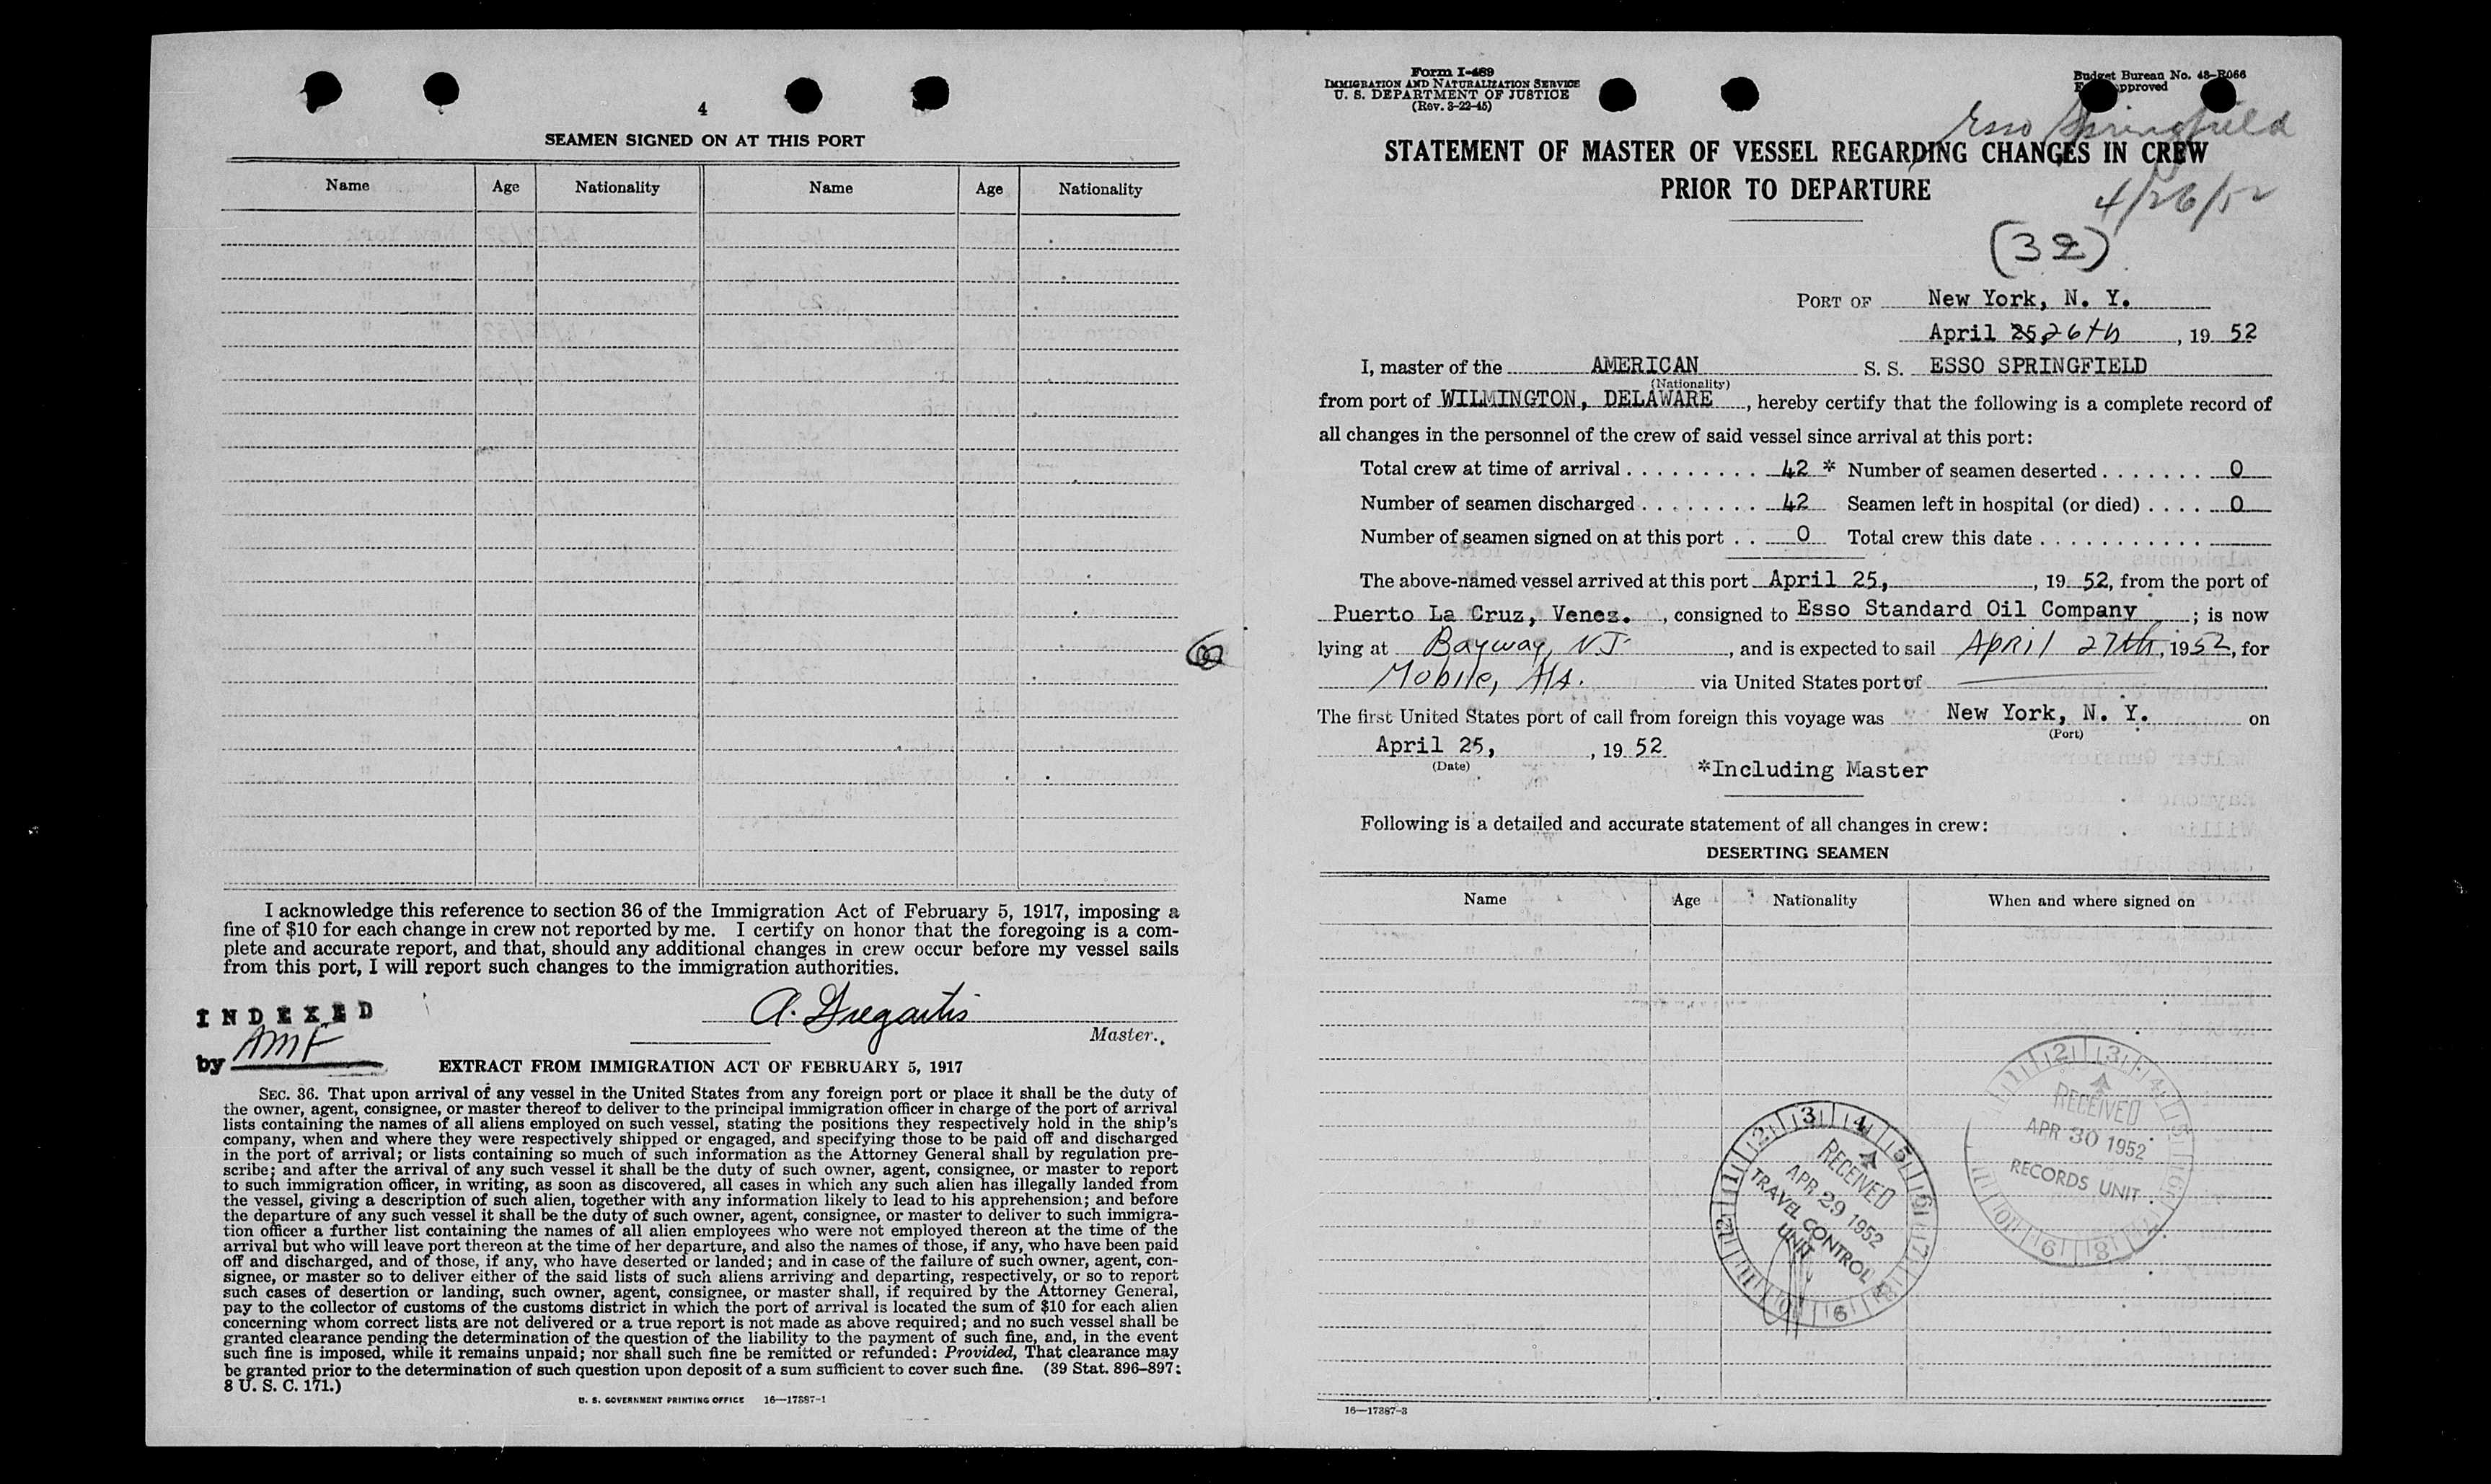 4
SEAMEN SIGNED ON AT THIS PORT
Name Age Nationality Name Age Nationality
I acknowledge this reference to section 36 of the Immigration Act of February 5, 1917, imposing a
fine of $10 for each change in crew not reported by me. I certify on honor that the foregoing is a com-
plete and accurate report, and that, should any additional changes in crew occur before my vessel sails
from this port, I will report such changes to the immigration authorities.
Master.
INDEXED
by AMF
EXTRACT FROM IMMIGRATION ACT OF FEBRUARY 5, 1917
SEC. 36. That upon arrival of any vessel in the United States from any foreign port or place it shall be the duty of
the owner, agent, consignee, or master thereof to deliver to the principal immigration officer in charge of the port of arrival
lists containing the names of all aliens employed on such vessel, stating the positions they respectively hold in the ship's
company, when and where they were respectively shipped or engaged, and specifying those to be paid off and discharged
in the port of arrival; or lists containing so much of such information as the Attorney General shall by regulation pre-
scribe; and after the arrival of any such vessel it shall be the duty of such owner, agent, consignee, or master to report
to such immigration officer, in writing, as soon as discovered, all cases in which any such alien has illegally landed from
the vessel, giving a description of such alien, together with any information likely to lead to his apprehension; and before
the departure of any such vessel it shall be the duty of such owner, agent, consignee, or master to deliver to such immigra-
tion officer a further list containing the names of all alien employees who were not employed thereon at the time of the
arrival but who will leave port thereon at the time of her departure, and also the names of those, if any, who have been paid
off and discharged, and of those, if any, who have deserted or landed; and in case of the failure of such owner, agent, con-
signee, or master so to deliver either of the said lists of such aliens arriving and departing, respectively, or so to report
such cases of desertion or landing, such owner, agent, consignee, or master shall, if required by the Attorney General,
pay to the collector of customs of the customs district in which the port of arrival is located the sum of $10 for each alien
concerning whom correct lists are not delivered or a true report is not made as above required; and no such vessel shall be
granted clearance pending the determination of the question of the liability to the payment of such fine, and, in the event
such fine is imposed, while it remains unpaid; nor shall such fine be remitted or refunded: Provided, That clearance may
be granted prior to the determination of such question upon deposit of a sum sufficient to cover such fine. (39 Stat. 896-897;
8 U. S. C. 171.)
U. S. GOVERNMENT PRINTING OFFICE 16—17387-1
Form I-489
IMMIGRATION AND NATURALIZATION SERVICE
U. S. DEPARTMENT OF JUSTICE
(Rev. 3-22-45)
Budget Bureau No. 43-R066
Esso Springfield
STATEMENT OF MASTER OF VESSEL REGARDING CHANGES IN CREW
PRIOR TO DEPARTURE
4/26/52
(32)
PORT OF New York, N. Y.
April 25, 26th, 19 52
I, master of the AMERICAN S. S. ESSO SPRINGFIELD
(Nationality)
from port of WILMINGTON, DELAWARE, hereby certify that the following is a complete record of
all changes in the personnel of the crew of said vessel since arrival at this port:
Total crew at time of arrival . . . . . . . . . 42 * Number of seamen deserted . . . . . . . 0
Number of seamen discharged . . . . . . . . 42 Seamen left in hospital (or died) . . . . 0
Number of seamen signed on at this port . . 0 Total crew this date . . . . . . . . . . . .
The above-named vessel arrived at this port April 25, , 19 52, from the port of
Puerto La Cruz, Venez. , consigned to Esso Standard Oil Company ; is now
lying at Bayway, NJ , and is expected to sail April 27th, 1952, for
Mobile, Ala. via United States port of
The first United States port of call from foreign this voyage was New York, N. Y. on
(Port)
April 25, , 19 52
(Date)
*Including Master
Following is a detailed and accurate statement of all changes in crew:
DESERTING SEAMEN
Name Age Nationality When and where signed on
RECEIVED
APR 29 1952
TRAVEL CONTROL
UNIT
RECEIVED
APR 30 1952
RECORDS UNIT
16—17387-3